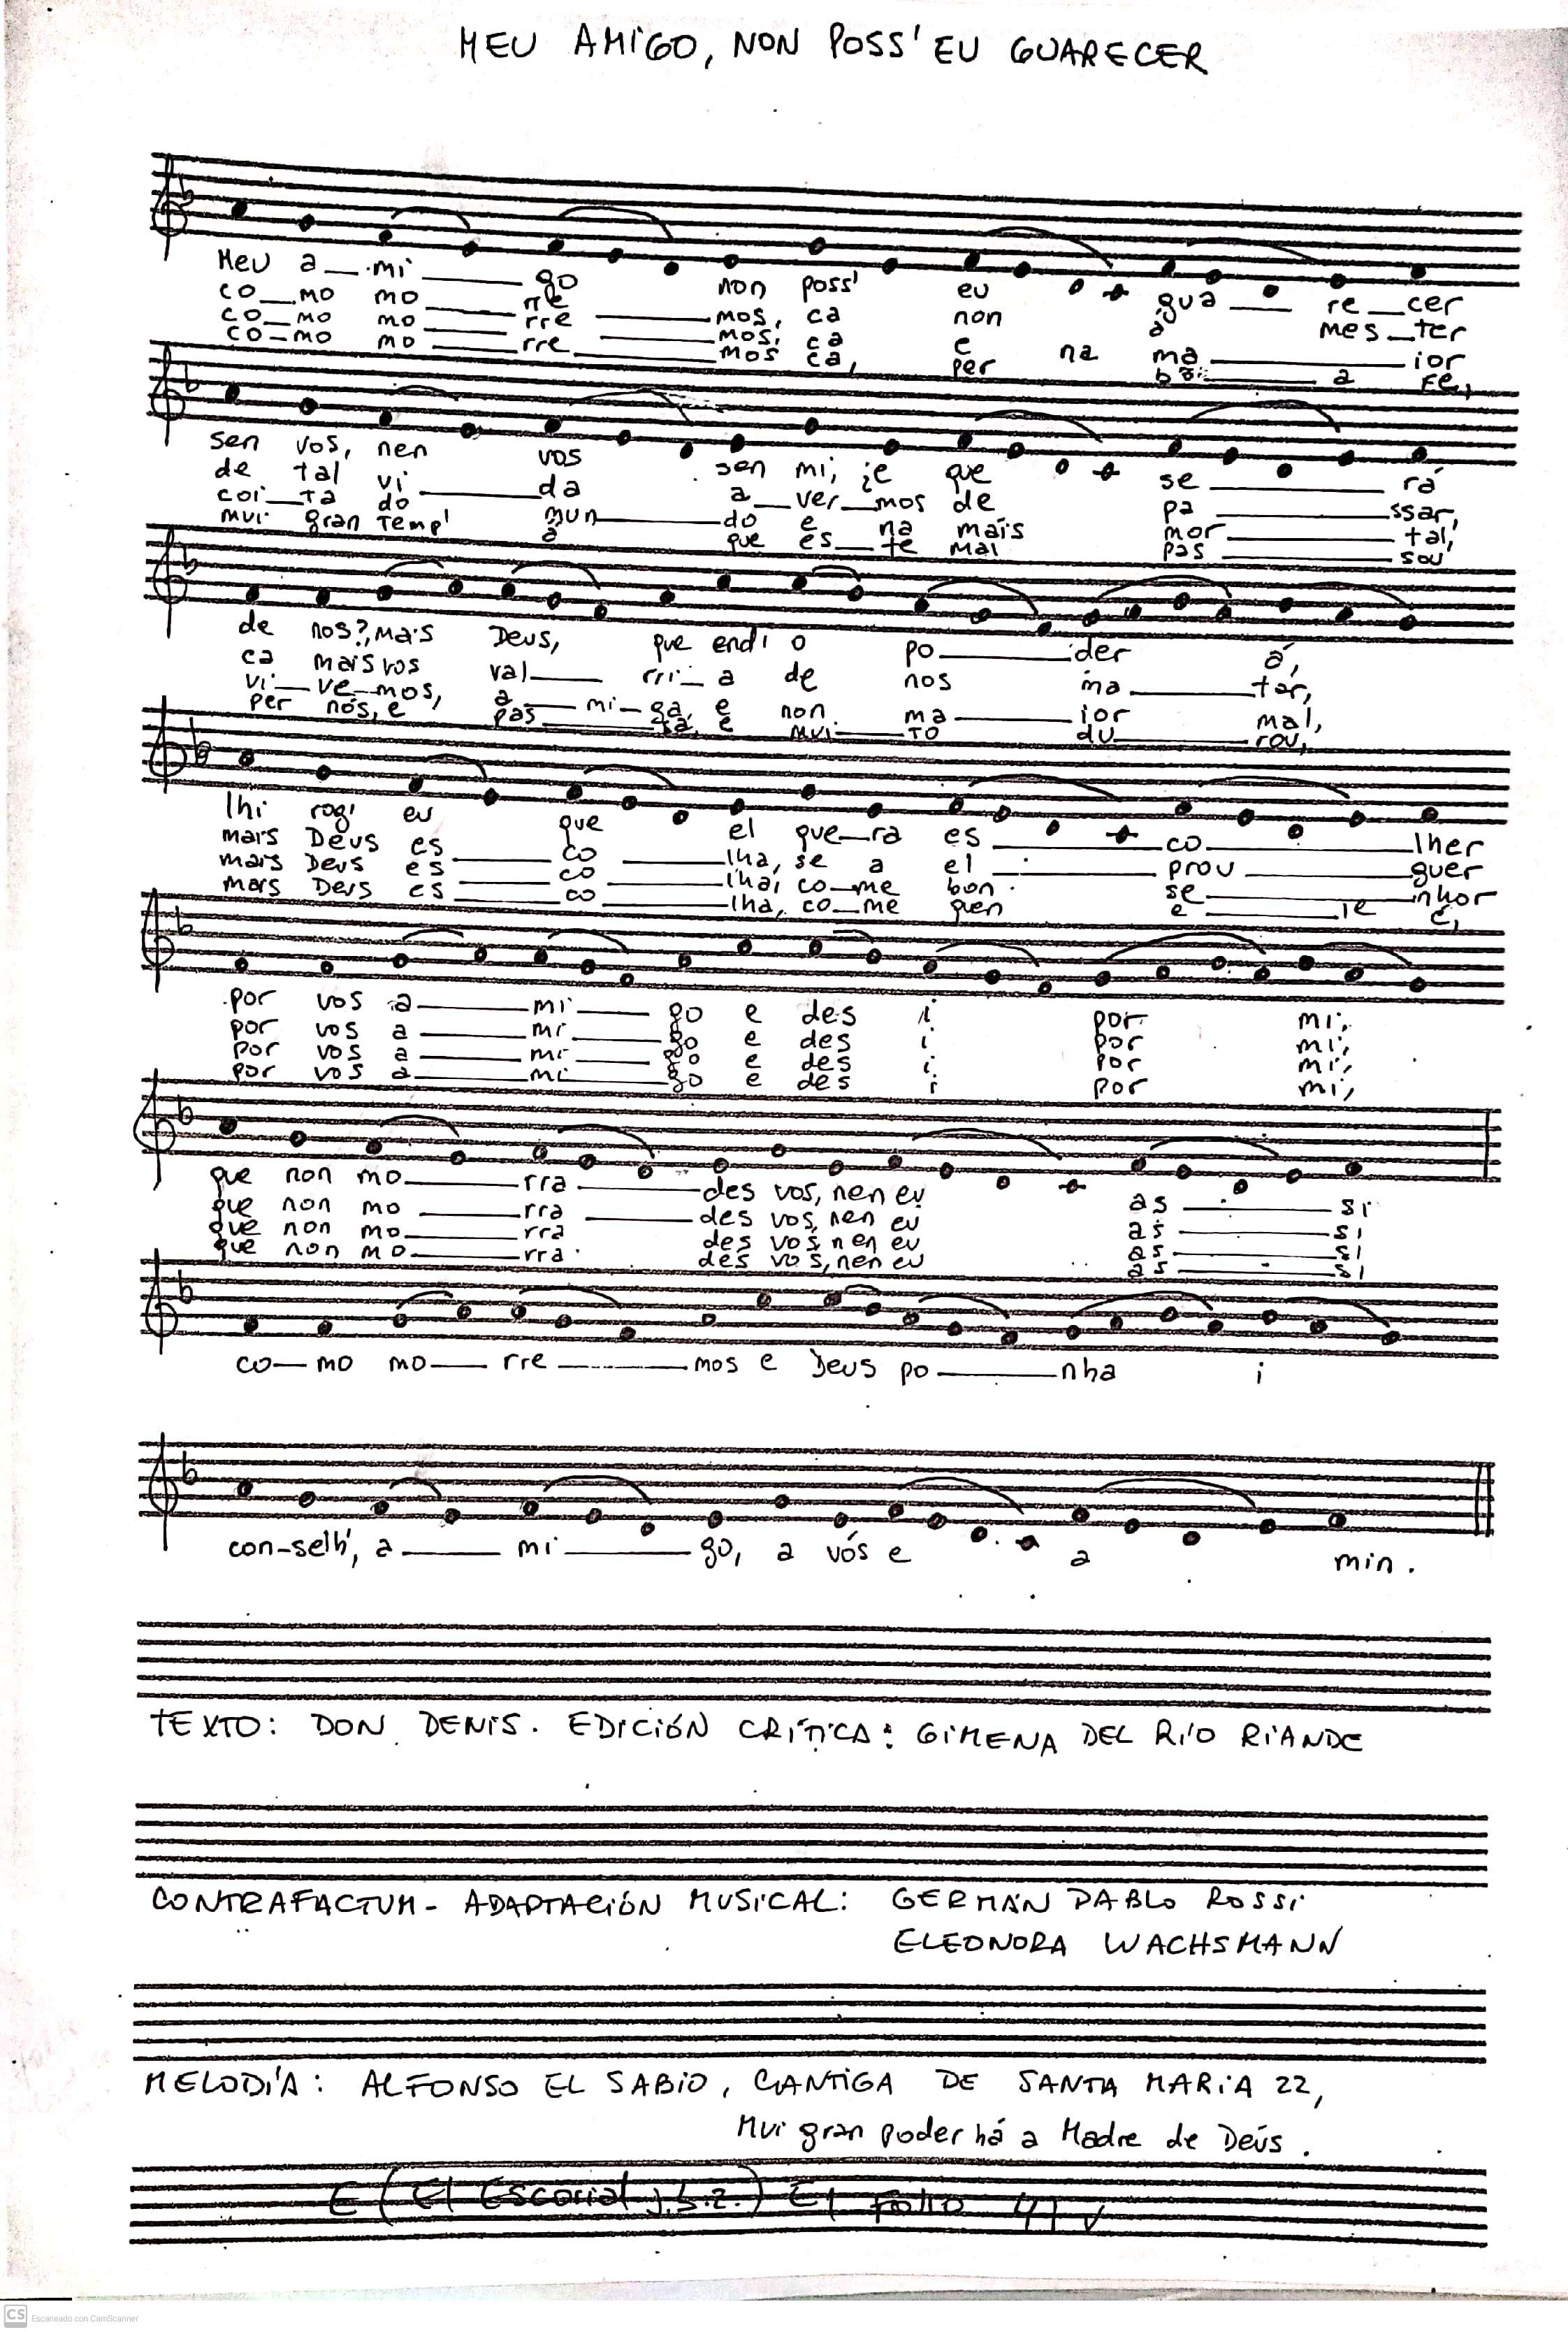 MEU AMIGO, NON POSS' EU GUARECER
Meu a mi go non poss' eu gua re cer
co mo mo rre mos, ca non á mes ter
co mo mo rre mos, ca e na ma ior
co mo mo rre mos ca, per bõ a fe,
sen vos, nen vos sen mi; ¿e que se rá
de tal vi da a ver mos de pa ssar,
coi ta do mun do e na mais mor tal,
mui gran temp' á que es te mal pas sou
de nos?, mais Deus, que end' o po der á,
ca mais vos val rri a de nos ma tar,
vi ve mos, a mi ga, e non ma ior mal,
per nós, e pas sa, e mui to du rou,
lhi rog' eu que el que ra es co lher
mais Deus es co lha, se a el prou guer
mais Deus es co lha, co me bon se nhor
mais Deus es co lha, co me quen e le é,
por vos a mi go e des i por mi,
por vos a mi go e des i por mi,
por vos a mi go e des i por mi,
por vos a mi go e des i por mi,
que non mo rra des vos, nen eu as si
que non mo rra des vos, nen eu as si
que non mo rra des vos nen eu as si
que non mo rra des vos, nen eu as si
co mo mo rre mos e Deus po nha i
con-selh', a mi go, a vós e a min.
TEXTO: DON DENIS. EDICIÓN CRÍTICA: GIMENA DEL RÍO RIANDE
CONTRAFACTUM - ADAPTACIÓN MUSICAL: GERMÁN PABLO ROSSI
ELEONORA WACHSMANN
MELODÍA: ALFONSO EL SABIO, CANTIGA DE SANTA MARIA 22,
Mui gran poder há a Madre de Deús.
E (El Escorial j.b.2.) E1 Folio 41 v
CS Escaneado con CamScanner